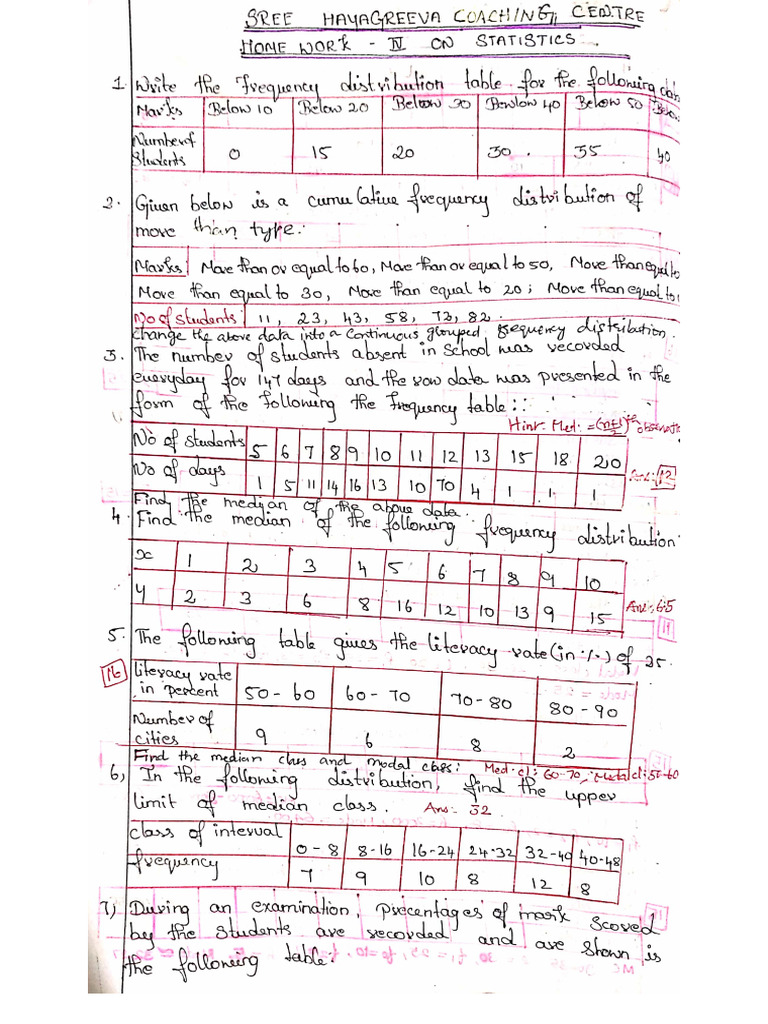 SREE HAYAGREEVA COACHING CENTRE
HOME WORK - IV ON STATISTICS.
1. Write the frequency distribution table for the following data
Marks Below 10 Below 20 Below 30 Benlow 40 Below 50 Below
Number of Students 0 15 20 30. 35 40
2. Given below is a cumulative frequency distribution of
more than type:
Marks: More than or equal to 60, More than or equal to 50, More than equal to
More than equal to 30, More than equal to 20; More than equal to
No of students: 11, 23, 43, 58, 72, 82.
Change the above data into a continuous grouped frequency distribution.
3. The number of students absent in school was recorded
everyday for 147 days and the raw data was presented in the
form of the following the frequency table:
Hint: Med. = (n+1/2)th observation
No of students 5 6 7 8 9 10 11 12 13 15 18 20
No of days 1 5 11 14 16 13 10 70 4 1 1 1 Ans: 12
Find the median of the above data.
4. Find the median of the following frequency distribution:
x 1 2 3 4 5 6 7 8 9 10
y 2 3 6 8 16 12 10 13 9 15 Ans: 6.5
5. The following table gives the literacy rate (in %) of 35.
16 literacy rate in percent 50-60 60-70 70-80 80-90
Number of cities 9 6 8 2
Find the median class and modal class: Med. cl: 60-70, Modal cl: 50-60
6, In the following distribution, find the upper
limit of median class. Ans:- 32
class of interval 0-8 8-16 16-24 24-32 32-40 40-48
frequency 7 9 10 8 12 8
7) During an examination, precentages of mark scored
by the students are recorded and are shown is
the following table: